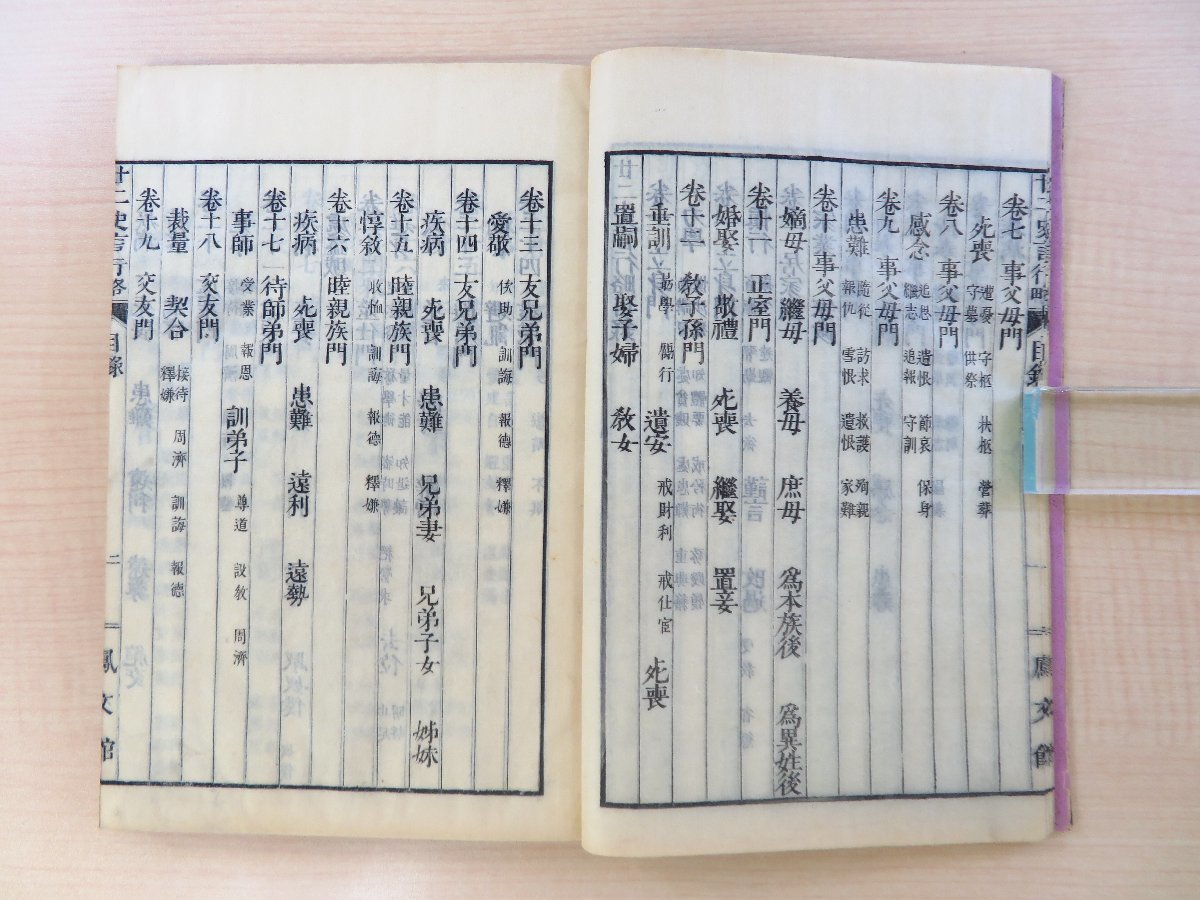 卷七 事父母門
死喪 遭憂 守柩 扶柩 營葬 守墓 供祭
卷八 事父母門
感念 追思 遺恨 節哀 保身 繼志 追報 守訓
卷九 事父母門
患難 隨從 訪求 救護 殉親 報仇 雪恨 遺恨 家難
卷十 事父母門
嫡母 繼母 養母 庶母 爲本族後 爲異姓後
卷十一 正室門
婚娶 敬禮 死喪 繼娶 置妾
卷十二 敎子孫門
垂訓 勗學 勵行 遺安 戒財利 戒仕宦 死喪
置嗣 娶子婦 敎女
廿二史言行略 目錄 一 鳳文館
卷十三 友兄弟門
愛敬 伙助 訓誨 報德 釋嫌
卷十四 友兄弟門
疾病 死喪 患難 兄弟妻 兄弟子女 姊妹
卷十五 睦親族門
惇敘 收恤 訓誨 報德 釋嫌
卷十六 睦親族門
疾病 死喪 患難 遠利 遠勢
卷十七 待師弟門
事師 受業 報恩 訓弟子 尊道 設敎 周濟
卷十八 交友門
裁量 契合 接待 周濟 訓誨 報德 釋嫌
卷十九 交友門
廿二史言行略 目錄 二 鳳文館